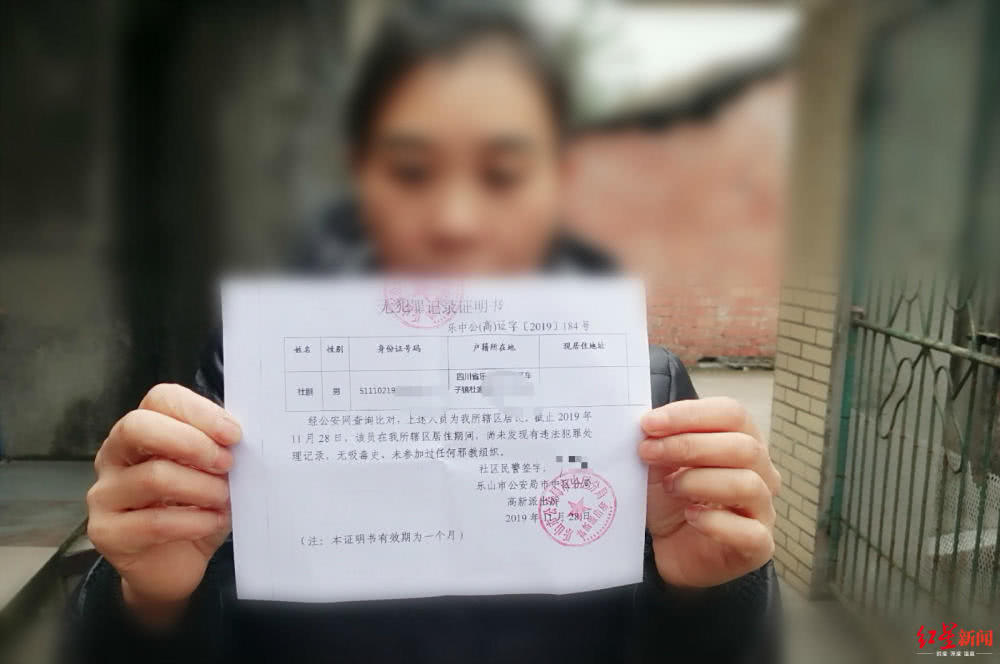 无犯罪记录证明书
乐中公(高)证字〔2019〕184号
姓名 性别 身份证号码 户籍所在地 现居住地址
杜剧 男 51110219 四川省乐 车
子镇杜
经公安网查询比对，上述人员为我所辖区居民，截止2019年
11月28日，该员在我所辖区居住期间，尚未发现有违法犯罪处
理记录，无吸毒史、未参加过任何邪教组织。
社区民警签字：
乐山市公安局市中区分局
高新派出所
2019年11月28日
（注：本证明书有效期为一个月）
红星新闻